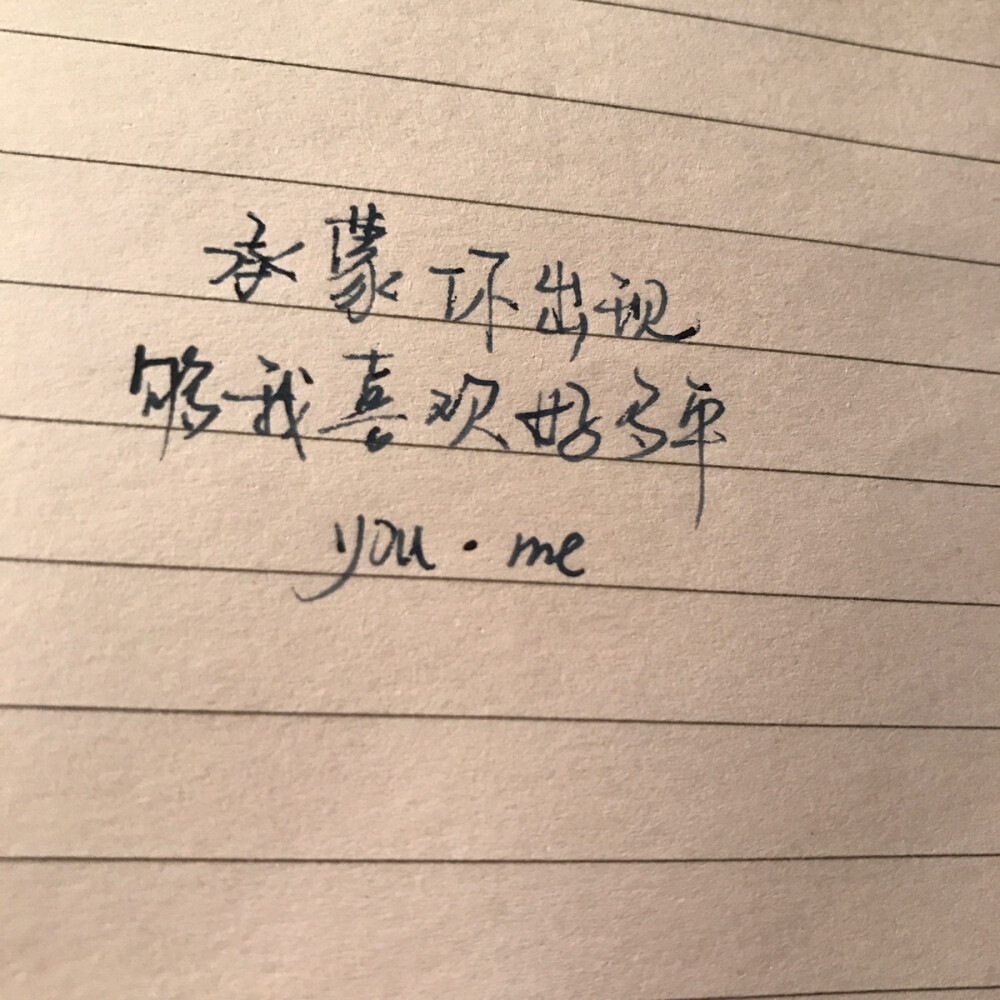 承蒙你出现
够我喜欢好多年
you · me